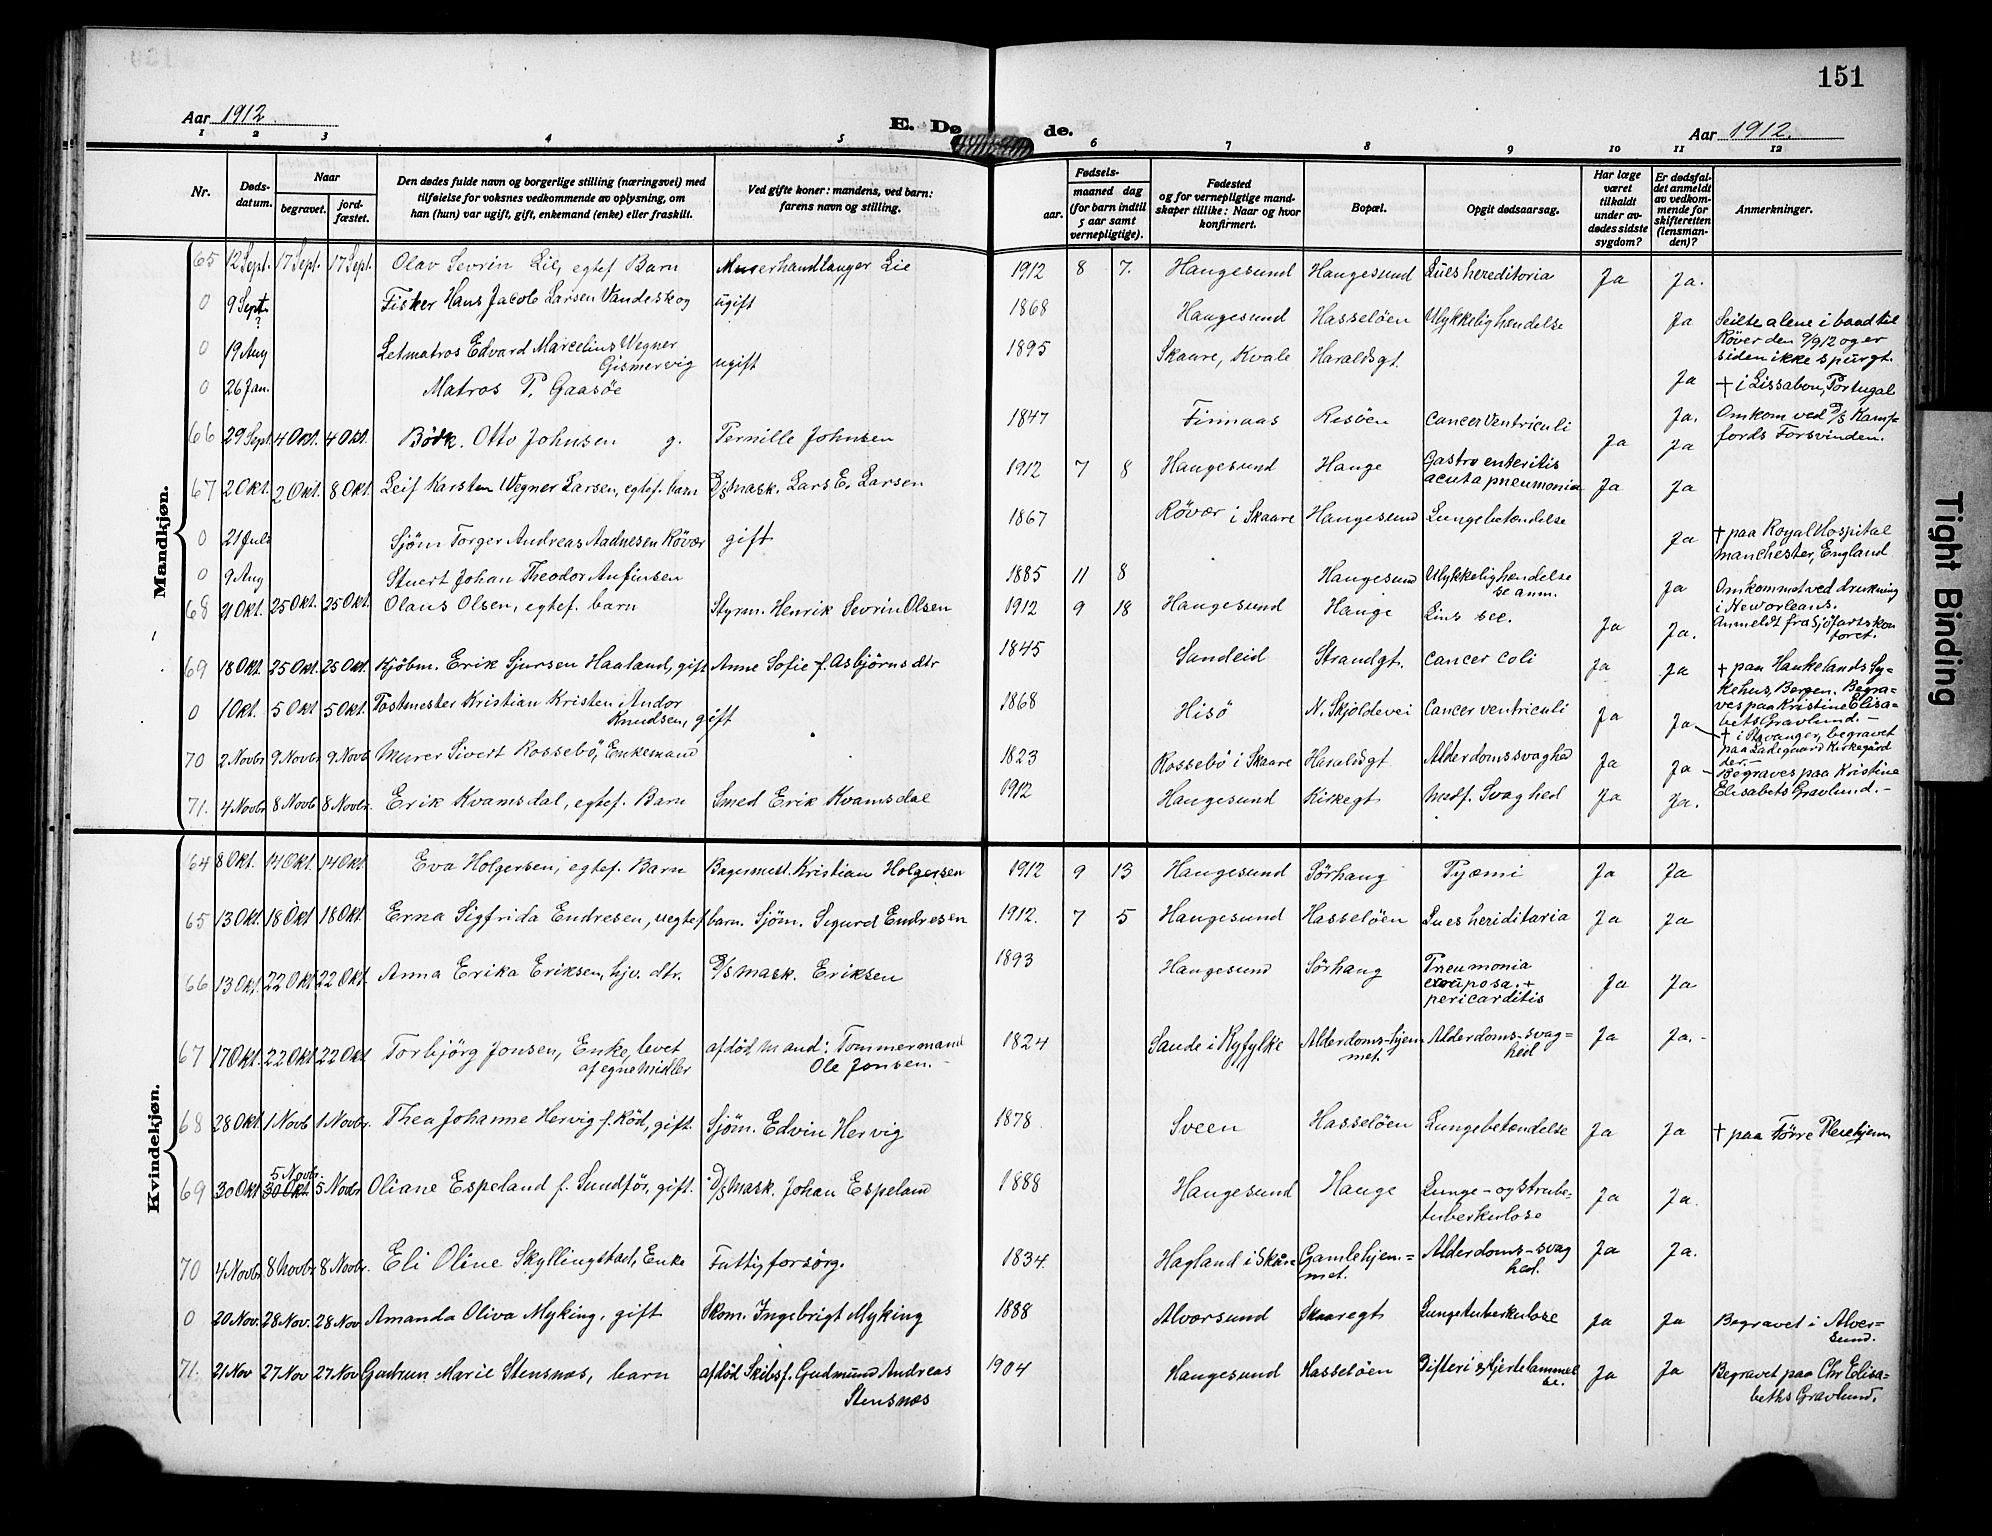 151
Aar 1912
E. Dø de.
Aar 1912.
1 2 3 4 5 6 7 8 9 10 11 12
Nr.
Døds-
datum.
Naar
begravet.
jord-
fæstet.
Den dødes fulde navn og borgerlige stilling (næringsvei) med
tilføielse for voksnes vedkommende av oplysning, om
han (hun) var ugift, gift, enkemand (enke) eller fraskilt.
Ved gifte koner: mandens, ved barn:
farens navn og stilling.
Fødsels-
aar.
maaned dag
(for barn indtil
5 aar samt
vernepligtige).
Fødested
og for vernepligtige mand-
skaper tillike: Naar og hvor
konfirmert.
Bopæl.
Opgit dødsaarsag.
Har læge
været
tilkaldt
under av-
dødes sidste
sygdom?
Er dødsfal-
det anmeldt
av vedkom-
mende for
skifteretten
(lensman-
den)?
Anmerkninger.
Mandkjøn.
65 12 Sept. 17 Sept. 17 Sept. Olav Sevrin Lie, egtef Barn Murerhandlanger Lie 1912 8 7. Haugesund Haugesund Lues hereditoria Ja Ja.
0 9 Sept. ? Fisker Hans Jacob Larsen Vandeskog ugift 1868 Haugesund Hasseløen Ulykkelighendelse Ja Seilte alene i baad til
Røver den 9/9 12 og er
siden ikke spurgt.
0 19 Aug Letmatros Edvard Marcelius Wegner
Gismervig ugift 1895 Skaare, Kvale Haraldsgt. Ja + i Lissabon, Portugal
0 26 Jan. Matros P. Gaasøe Ja. Omkom ved D/S Kamp-
fords Forsvinden.
66 29 Sept 4 Okt. 4 Okt. Bødk. Otto Johnsen g. Pernille Johnsen 1847 Finnaas Risøen Cancer Ventriculi Ja Ja
67 2 Okt. 2 Okt. 8 Okt. Leif Karsten Wegner Larsen, egtef. barn D/S mask. Lars E. Larsen 1912 7 8 Haugesund Hauge Gastro enteritis
acuta pneumonia Ja Ja
0 21 Juli Sjøm Torger Andreas Aadnesen Røvær gift 1867 Røvær i Skaare Haugesund Lungebetændelse Ja + paa Royal Hospital
Manchester, England
0 9 Aug Stuert Johan Theodor Anfinsen 1885 11 8 Haugesund Ulykkelighendelse
se anm. Ja Omkommet ved drukning
i Neworleans.
Anmeldt fra Sjøfartskon
toret.
68 21 Okt. 25 Okt. 25 Okt. Olaus Olsen, egtef. barn Styrm. Henrik Sevrin Olsen 1912 9 18 Haugesund Hauge Ja Ja.
69 18 Okt. 25 Okt. 25 Okt. Kjøbm. Erik Sjursen Haaland, gift Anne Sofie f. Asbjørnsdtr 1845 Sandeid Strandgt. Cancer coli Ja Ja + paa Haukelands Sy-
kehus, Bergen. Begra-
ves paa Kristine Elisa-
bets Gravlund. -
0 1 Okt. 5 Okt 5 Okt. Tostmester Kristian Kristen Andor
Knudsen, gift 1868 Hisø N. Skjoldevei Cancer ventriculi Ja Ja + i Stavanger, begravet
paa Ladegaard Kirkegård
der. -
70 2 Novbr 9 Novbr 9 Novbr Murer Sivert Rossebø, Enkemand 1823 Rossebø i Skaare Haraldsgt Alderdomssvaghed Ja Ja - Begraves paa Kristine
Elisabets Gravlund. -
71. 4 Novbr 8 Novb 8 Novbr. Erik Kvamsdal, egtef. Barn Smed Erik Kvamsdal 1912 Haugesund Kirkegt Medf. Svaghed Ja Ja.
Kvindekjøn.
64 8 Okt. 14 Okt. 14 Okt Eva Holgersen, egtef. Barn Bagermest. Kristian Holgersen 1912 9 13 Haugesund Sørhaug Pyæmi Ja Ja
65 13 Okt. 18 Okt 18 Okt Erna Sigfrida Endresen, uegtef barn. Sjøm. Sigurd Endresen 1912. 7 5 Haugesund Hasseløen Lues heriditaria Ja Ja
66 13 Okt. 22 Okt 22 Okt. Anna Erika Eriksen, hjv. dtr. D/S mask. Eriksen 1893 Haugesund Sørhaug Pneumonia
crouposa. +
pericarditis Ja Ja
67 17 Okt. 22 Okt 22 Okt Torbjørg Jonsen, Enke, levet
af egne Midler afdød mand: Tømmermand
Ole Jonsen. - 1824 Sande i Ryfylke Alderdoms-hjem
met. Alderdoms-svag=
hed Ja Ja. -
68 28 Okt 1 Novb 1 Novbr. Thea Johanne Hervig f. Rød, gift. Sjøm. Edvin Hervig 1878 Sveen Hasseløen Lungebetændelse Ja Ja + paa Tørre Pleiehjem
69 30 Okt 5 Novbr
30 Okt. 5 Novbr Oliane Espeland f. Sundfør, gift. D/S mask. Johan Espeland 1888 Haugesund Hauge Lunge- og strube-
tuberkulose Ja Ja.
70 4 Novbr 8 Novbr 8 Novbr. Eli Oline Skyllingstad, Enke Fattigforsørg. 1834. Hagland i Skåre Gamlehjem-=
met. Alderdoms-svag
hed. Ja Ja.
0 20 Nov. 28 Nov. 28 Nov Amanda Oliva Myking, gift Skom. Ingebrigt Myking 1888 Alversund Skaaregt Lungetuberkulose Ja Ja Begravet i Alver=
sund.
71. 21 Nov 27 Nov 27 Nov Gudrun Marie Stensnæs, barn afdød Skibsf. Gudmund Andreas
Stensnæs 1904 Haugesund Hasseløen Difteri & Hjertelammel
se. Ja Ja Begravet paa Chr Elisa-
beths Gravlund.
Tight Binding